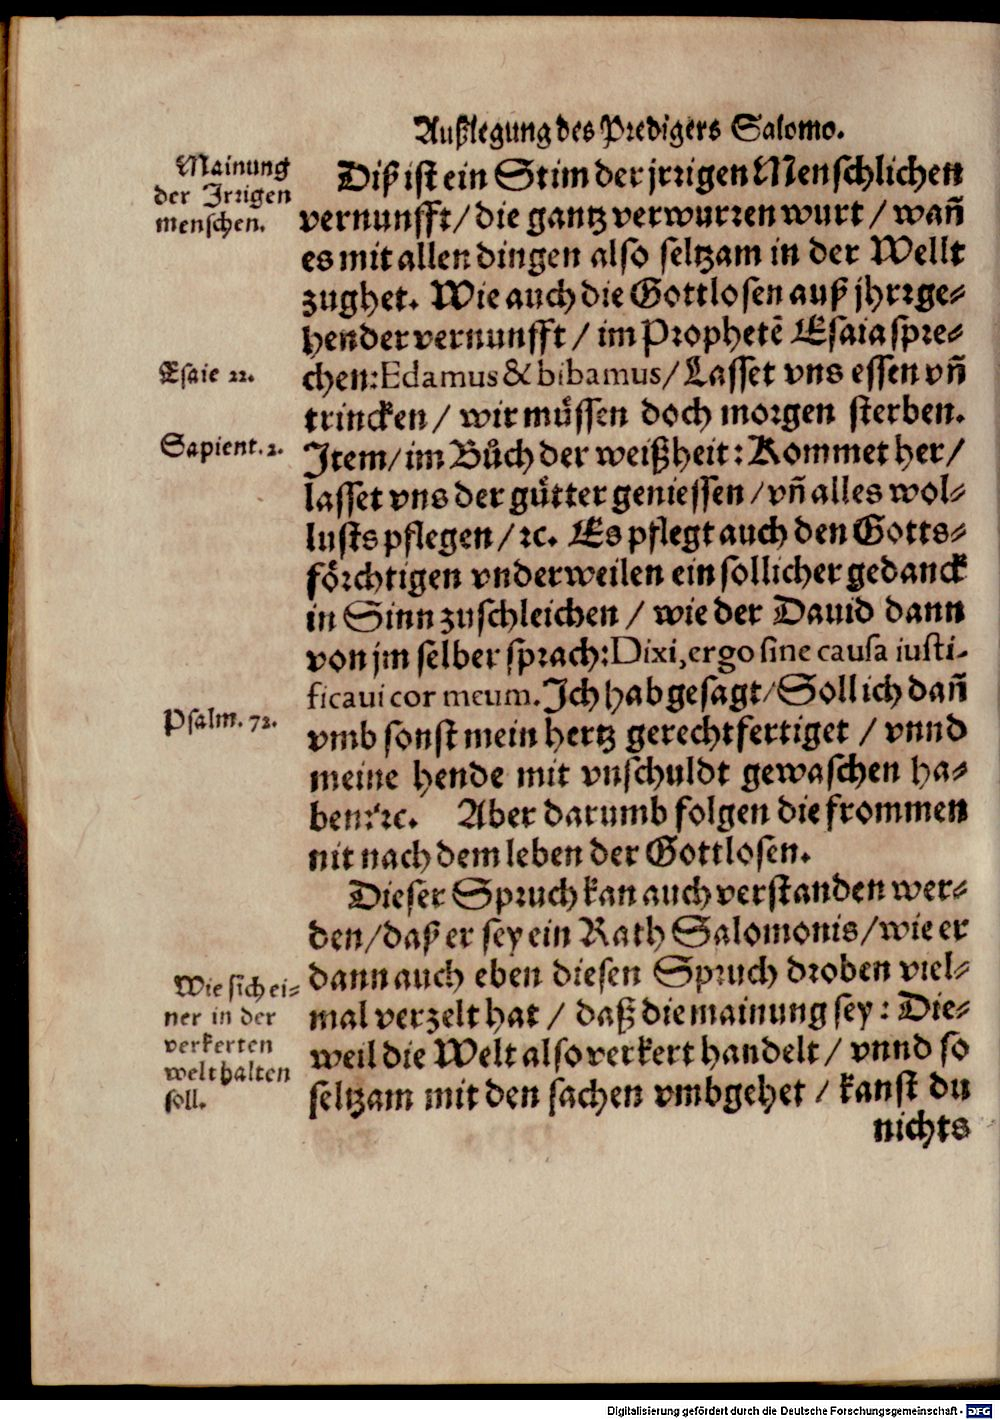 Außlegung des Predigers Salomo.
Mainung
der Irrigen
menschen.
Diß ist ein Stim der jrrigen Menschlichen
vernunfft / die gantz verwurren wurt / wañ
es mit allen dingen also seltzam in der Wellt
zughet. Wie auch die Gottlosen auß jhrrge-
hender vernunfft / im Prophetẽ Esaia spre-
Esaie 22.
chen: Edamus & bibamus / Lasset vns essen vñ
trincken / wir müssen doch morgen sterben.
Sapient. 2.
Item / im Bůch der weißheit: Kommet her /
lasset vns der gütter geniessen / vñ alles wol-
lusts pflegen / ꝛc. Es pflegt auch den Gotts-
förchtigen vnderweilen ein sollicher gedanck
in Sinn zuschleichen / wie der Dauid dann
von jm selber sprach: Dixi, ergo sine causa iusti-
ficaui cor meum. Ich hab gesagt / Soll ich dañ
Psalm. 72.
vmb sonst mein hertz gerechtfertiget / vnnd
meine hende mit vnschuldt gewaschen ha-
ben: ꝛc. Aber darumb folgen die frommen
nit nach dem leben der Gottlosen.
Dieser Spruch kan auch verstanden wer-
den / daß er sey ein Rath Salomonis / wie er
Wie sich ei-
ner in der
verkerten
welt halten
soll.
dann auch eben diesen Spruch droben viel-
mal verzelt hat / daß die mainung sey: Die-
weil die Welt also verkert handelt / vnnd so
seltzam mit den sachen vmbgehet / kanst du
nichts
Digitalisierung gefördert durch die Deutsche Forschungsgemeinschaft - DFG